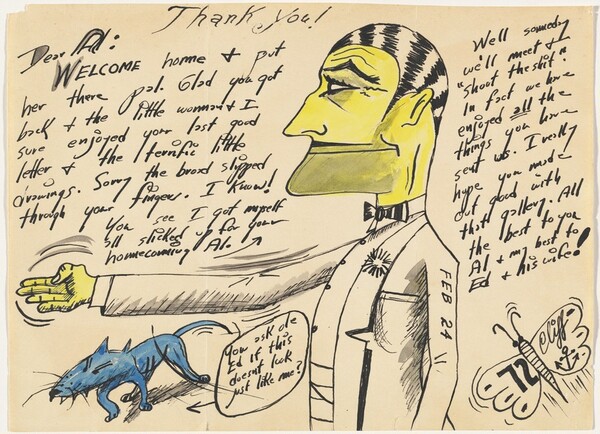 Thank you!
Dear Al:
WELCOME home & put
her there pal. Glad you got
back & the little womman & I
sure enjoyed your last good
letter & the terrific little
drawings. Sorry the broad slipped
through your fingers. I know!
You see I got myself
all slicked up for your
homecoming Al.
Well someday
we'll meet &
"shoot the shit".
In fact we have
enjoyed all the
things you have
sent us. I really
hype you made
out good with
that gallery. All
the best to you
Al & my best to
Ed & his wife!
FEB 24
You ask ole
Ed if this
doesnt look
just like me?
Cliff
72